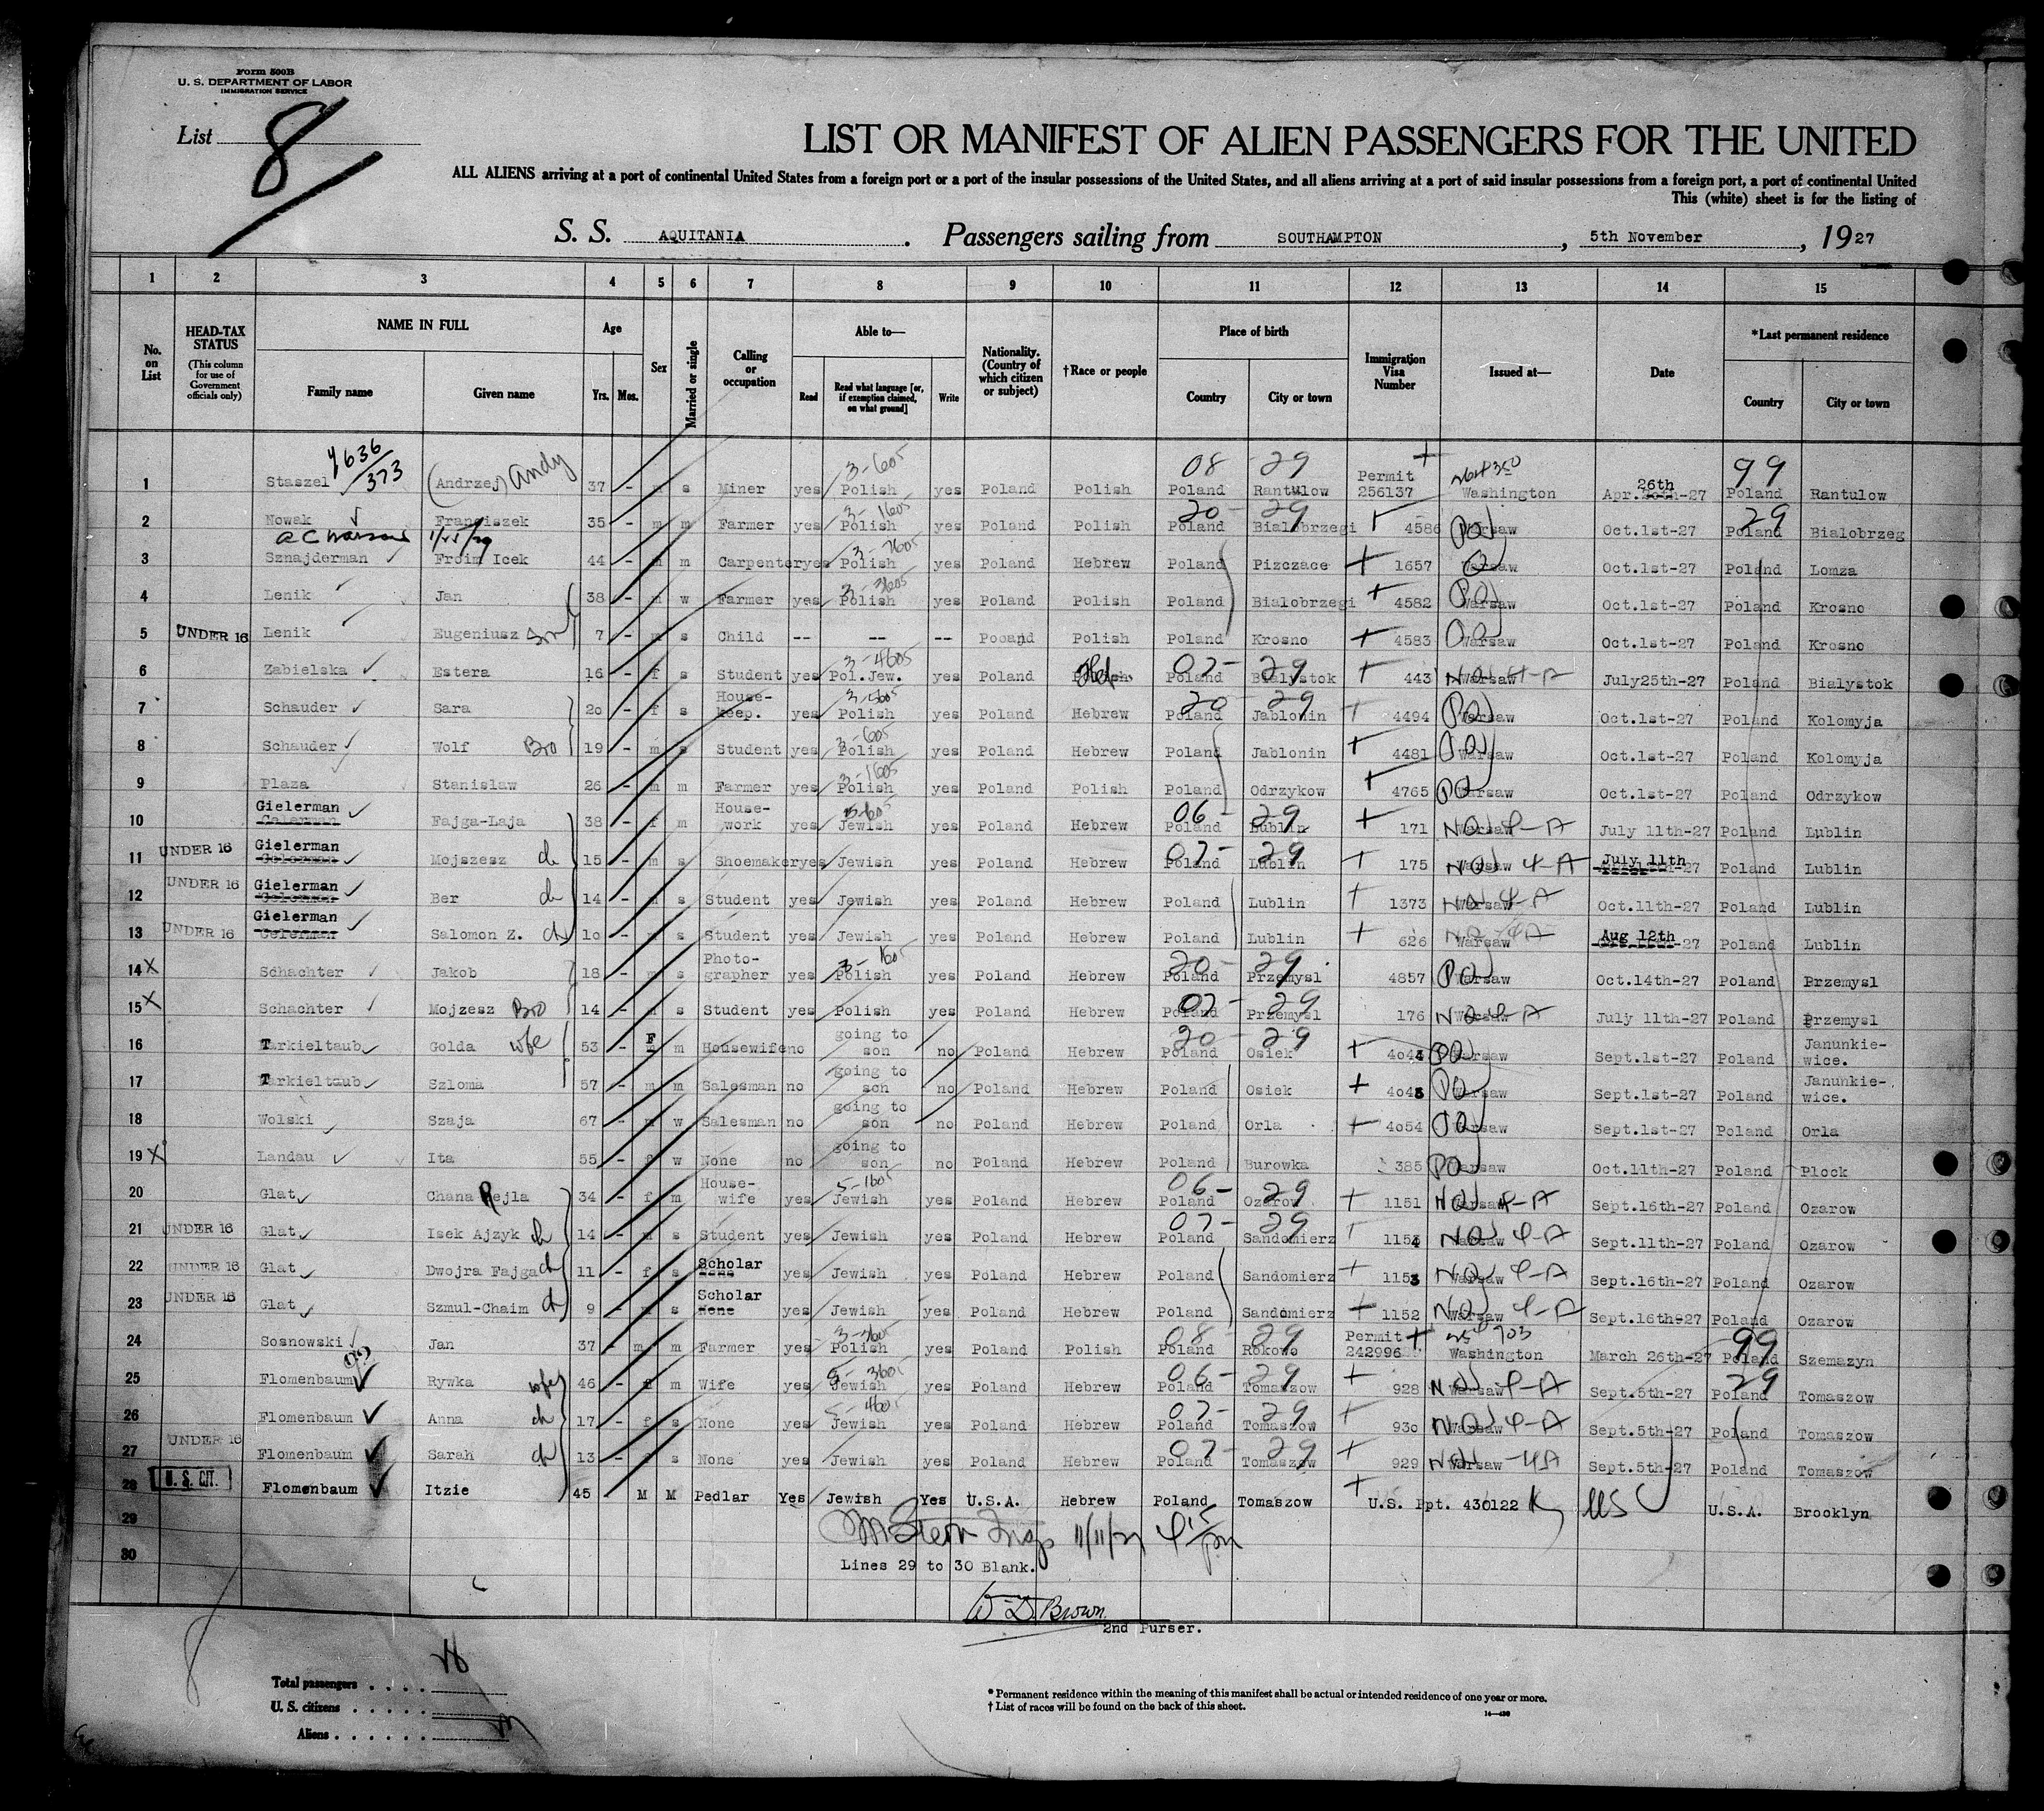 Form 500B
U. S. DEPARTMENT OF LABOR
IMMIGRATION SERVICE
List 8
LIST OR MANIFEST OF ALIEN PASSENGERS FOR THE UNITED
ALL ALIENS arriving at a port of continental United States from a foreign port or a port of the insular possessions of the United States, and all aliens arriving at a port of said insular possessions from a foreign port, a port of continental United
This (white) sheet is for the listing of
S. S. AQUITANIA . Passengers sailing from SOUTHAMPTON , 5th November , 1927
1 2 3 4 5 6 7 8 9 10 11 12 13 14 15
No. on List
HEAD-TAX STATUS (This column for use of Government officials only)
NAME IN FULL Family name Given name
Age Yrs. Mos.
Sex
Married or single
Calling or occupation
Able to— Read Read what language [or, if exemption claimed, on what ground] Write
Nationality. (Country of which citizen or subject)
†Race or people
Place of birth Country City or town
Immigration Visa Number
Issued at—
Date
*Last permanent residence Country City or town
1 Staszel 4636/373 (Andrzej) Andy 37 - m s Miner yes Polish 3-605 yes Poland Polish 08 - 29 Poland Rantulow Permit 256137 Washington Apr. 26th-27 99 Poland Rantulow
2 Nowak Franciszek 35 - m m Farmer yes Polish 3-1605 yes Poland Polish 20 - 29 Poland Bialobrzegi 4586 Warsaw Oct.1st-27 29 Poland Bialobrzeg
3 Sznajderman Froim Icek 44 - m m Carpenter yes Polish yes Poland Hebrew Poland Pizczace 1657 Warsaw Oct.1st-27 Poland Lomza
4 Lenik Jan 38 - m w Farmer yes Polish 3-3605 yes Poland Polish Poland Bialobrzegi 4582 Warsaw Oct.1st-27 Poland Krosno
5 UNDER 16 Lenik Eugeniusz Son 7 - m s Child -- -- -- Pocand Polish Poland Krosno 4583 Warsaw Oct.1st-27 Poland Krosno
6 Zabielska Estera 16 - f s Student yes Pol.Jew. 3-4605 yes Poland Heb. 07 - 29 Poland Bialystok 443 Warsaw July25th-27 Poland Bialystok
7 Schauder Sara 20 - f s House-keep. yes Polish yes Poland Hebrew 20 - 29 Poland Jablonin 4494 Warsaw Oct.1st-27 Poland Kolomyja
8 Schauder Wolf Bro 19 - m s Student yes Polish 3-605 yes Poland Hebrew Poland Jablonin 4481 Warsaw Oct.1st-27 Poland Kolomyja
9 Plaza Stanislaw 26 - m m Farmer yes Polish 3-1605 yes Poland Polish Poland Odrzykow 4765 Warsaw Oct.1st-27 Poland Odrzykow
10 Gielerman Fajga-Laja 38 - f m House-work yes Jewish yes Poland Hebrew 06 - 29 Poland Lublin 171 Warsaw 4-A July 11th-27 Poland Lublin
11 UNDER 16 Gielerman Mojszesz ch 15 - m s Shoemaker yes Jewish yes Poland Hebrew 07 - 29 Poland Lublin 175 Warsaw 4-A July 11th-27 Poland Lublin
12 UNDER 16 Gielerman Ber ch 14 - m s Student yes Jewish yes Poland Hebrew Poland Lublin 1373 Warsaw 4-A Oct.11th-27 Poland Lublin
13 UNDER 16 Gielerman Salomon Z. ch 10 - m s Student yes Jewish yes Poland Hebrew Poland Lublin 626 Warsaw 4A Aug 12th-27 Poland Lublin
14 X Sdhachter Jakob 18 - m s Photo-grapher yes Polish yes Poland Hebrew 20 - 29 Poland Przemysl 4857 Warsaw Oct.14th-27 Poland Przemysl
15 X Schachter Mojzesz Bro 14 - m s Student yes Polish yes Poland Hebrew 07 - 29 Poland Przemysl 176 Warsaw 4-A July 11th-27 Poland Przemysl
16 Tarkieltaub Golda wfe 53 - F m Housewife no going to son no Poland Hebrew 20 - 29 Poland Osiek Warsaw Sept.1st-27 Poland Janunkie-wice.
17 Tarkieltaub Szloma 57 - m m Salesman no going to son no Poland Hebrew Poland Osiek Warsaw Sept.1st-27 Poland Janunkie-wice.
18 Wolski Szaja 67 - m w Salesman no going to son no Poland Hebrew Poland Orla 4054 Warsaw Sept.1st-27 Poland Orla
19 X Landau Ita 55 - f w None no going to son no Poland Hebrew Poland Burowka 385 Warsaw Oct.11th-27 Poland Plock
20 Glat Chana Rejla 34 - f m House-wife yes Jewish 5-1605 yes Poland Hebrew 06 - 29 Poland Ozarow 1151 Warsaw 4-A Sept.16th-27 Poland Ozarow
21 UNDER 16 Glat Isek Ajzyk ch 14 - m s Student yes Jewish yes Poland Hebrew 07 - 29 Poland Sandomierz 1154 Warsaw 4-A Sept.11th-27 Poland Ozarow
22 UNDER 16 Glat Dwojra Fajga ch 11 - f s Scholar yes Jewish yes Poland Hebrew Poland Sandomierz 1153 Warsaw 4-A Sept.16th-27 Poland Ozarow
23 UNDER 16 Glat Szmul-Chaim ch 9 - m s Scholar None yes Jewish yes Poland Hebrew Poland Sandomierz 1152 Warsaw 4-A Sept.16th927 Poland Ozarow
24 Sosnowski Jan 37 - m m Farmer yes Polish yes Poland Polish 08 - 29 Poland Rokowo Permit 242996 Washington March 26th-27 99 Poland Szemazyn
25 Flomenbaum Rywka wfe 46 - f m Wife yes Jewish 5-3605 yes Poland Hebrew 06 - 29 Poland Tomaszow 928 Warsaw 4-A Sept.5th-27 29 Poland Tomaszow
26 Flomenbaum Anna ch 17 - f s None yes Jewish 5-4605 yes Poland Hebrew 07 - 29 Poland Tomaszow 930 Warsaw 4-A Sept.5th-27 Poland Tomaszow
27 UNDER 16 Flomenbaum Sarah ch 13 - f s None yes Jewish yes Poland Hebrew 07 - 29 Poland Tomaszow 929 Warsaw -4A Sept.5th-27 Poland Tomaszow
28 U. S. CIT. Flomenbaum Itzie 45 M M Pedlar Yes Jewish Yes U.S.A. Hebrew Poland Tomaszow U.S. Ppt. 430122 US U.S.A. Brooklyn
29 M Stern Insp 11/11/27 4 15 pm
30 Lines 29 to 30 Blank.
W D. Brown.
2nd Purser.
Total passengers . . . .
U. S. citizens . . . . .
Aliens . . . . . .
* Permanent residence within the meaning of this manifest shall be actual or intended residence of one year or more.
† List of races will be found on the back of this sheet.